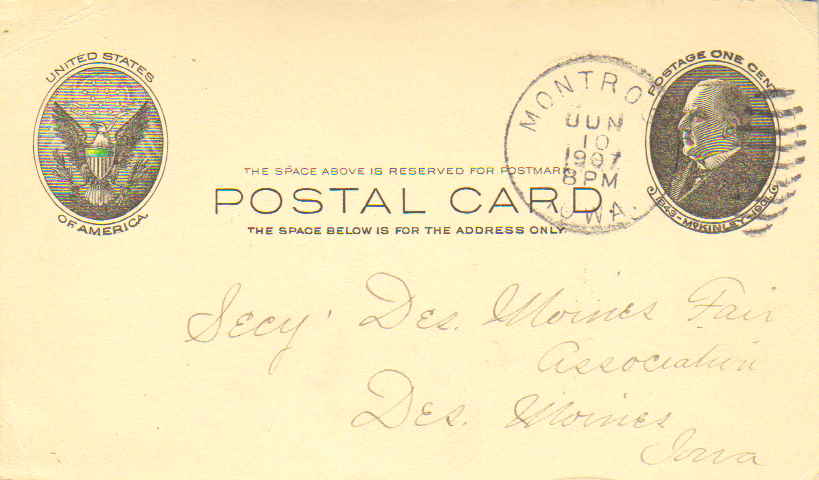 UNITED STATES
OF AMERICA.
THE SPACE ABOVE IS RESERVED FOR POSTMARK
POSTAL CARD
THE SPACE BELOW IS FOR THE ADDRESS ONLY.
MONTRO
JUN
10
1907
8 PM
IOWA.
POSTAGE ONE CENT
1843-MCKINLEY-1901
Secy. Des. Moines Fair
Association
Des. Moines
Iowa